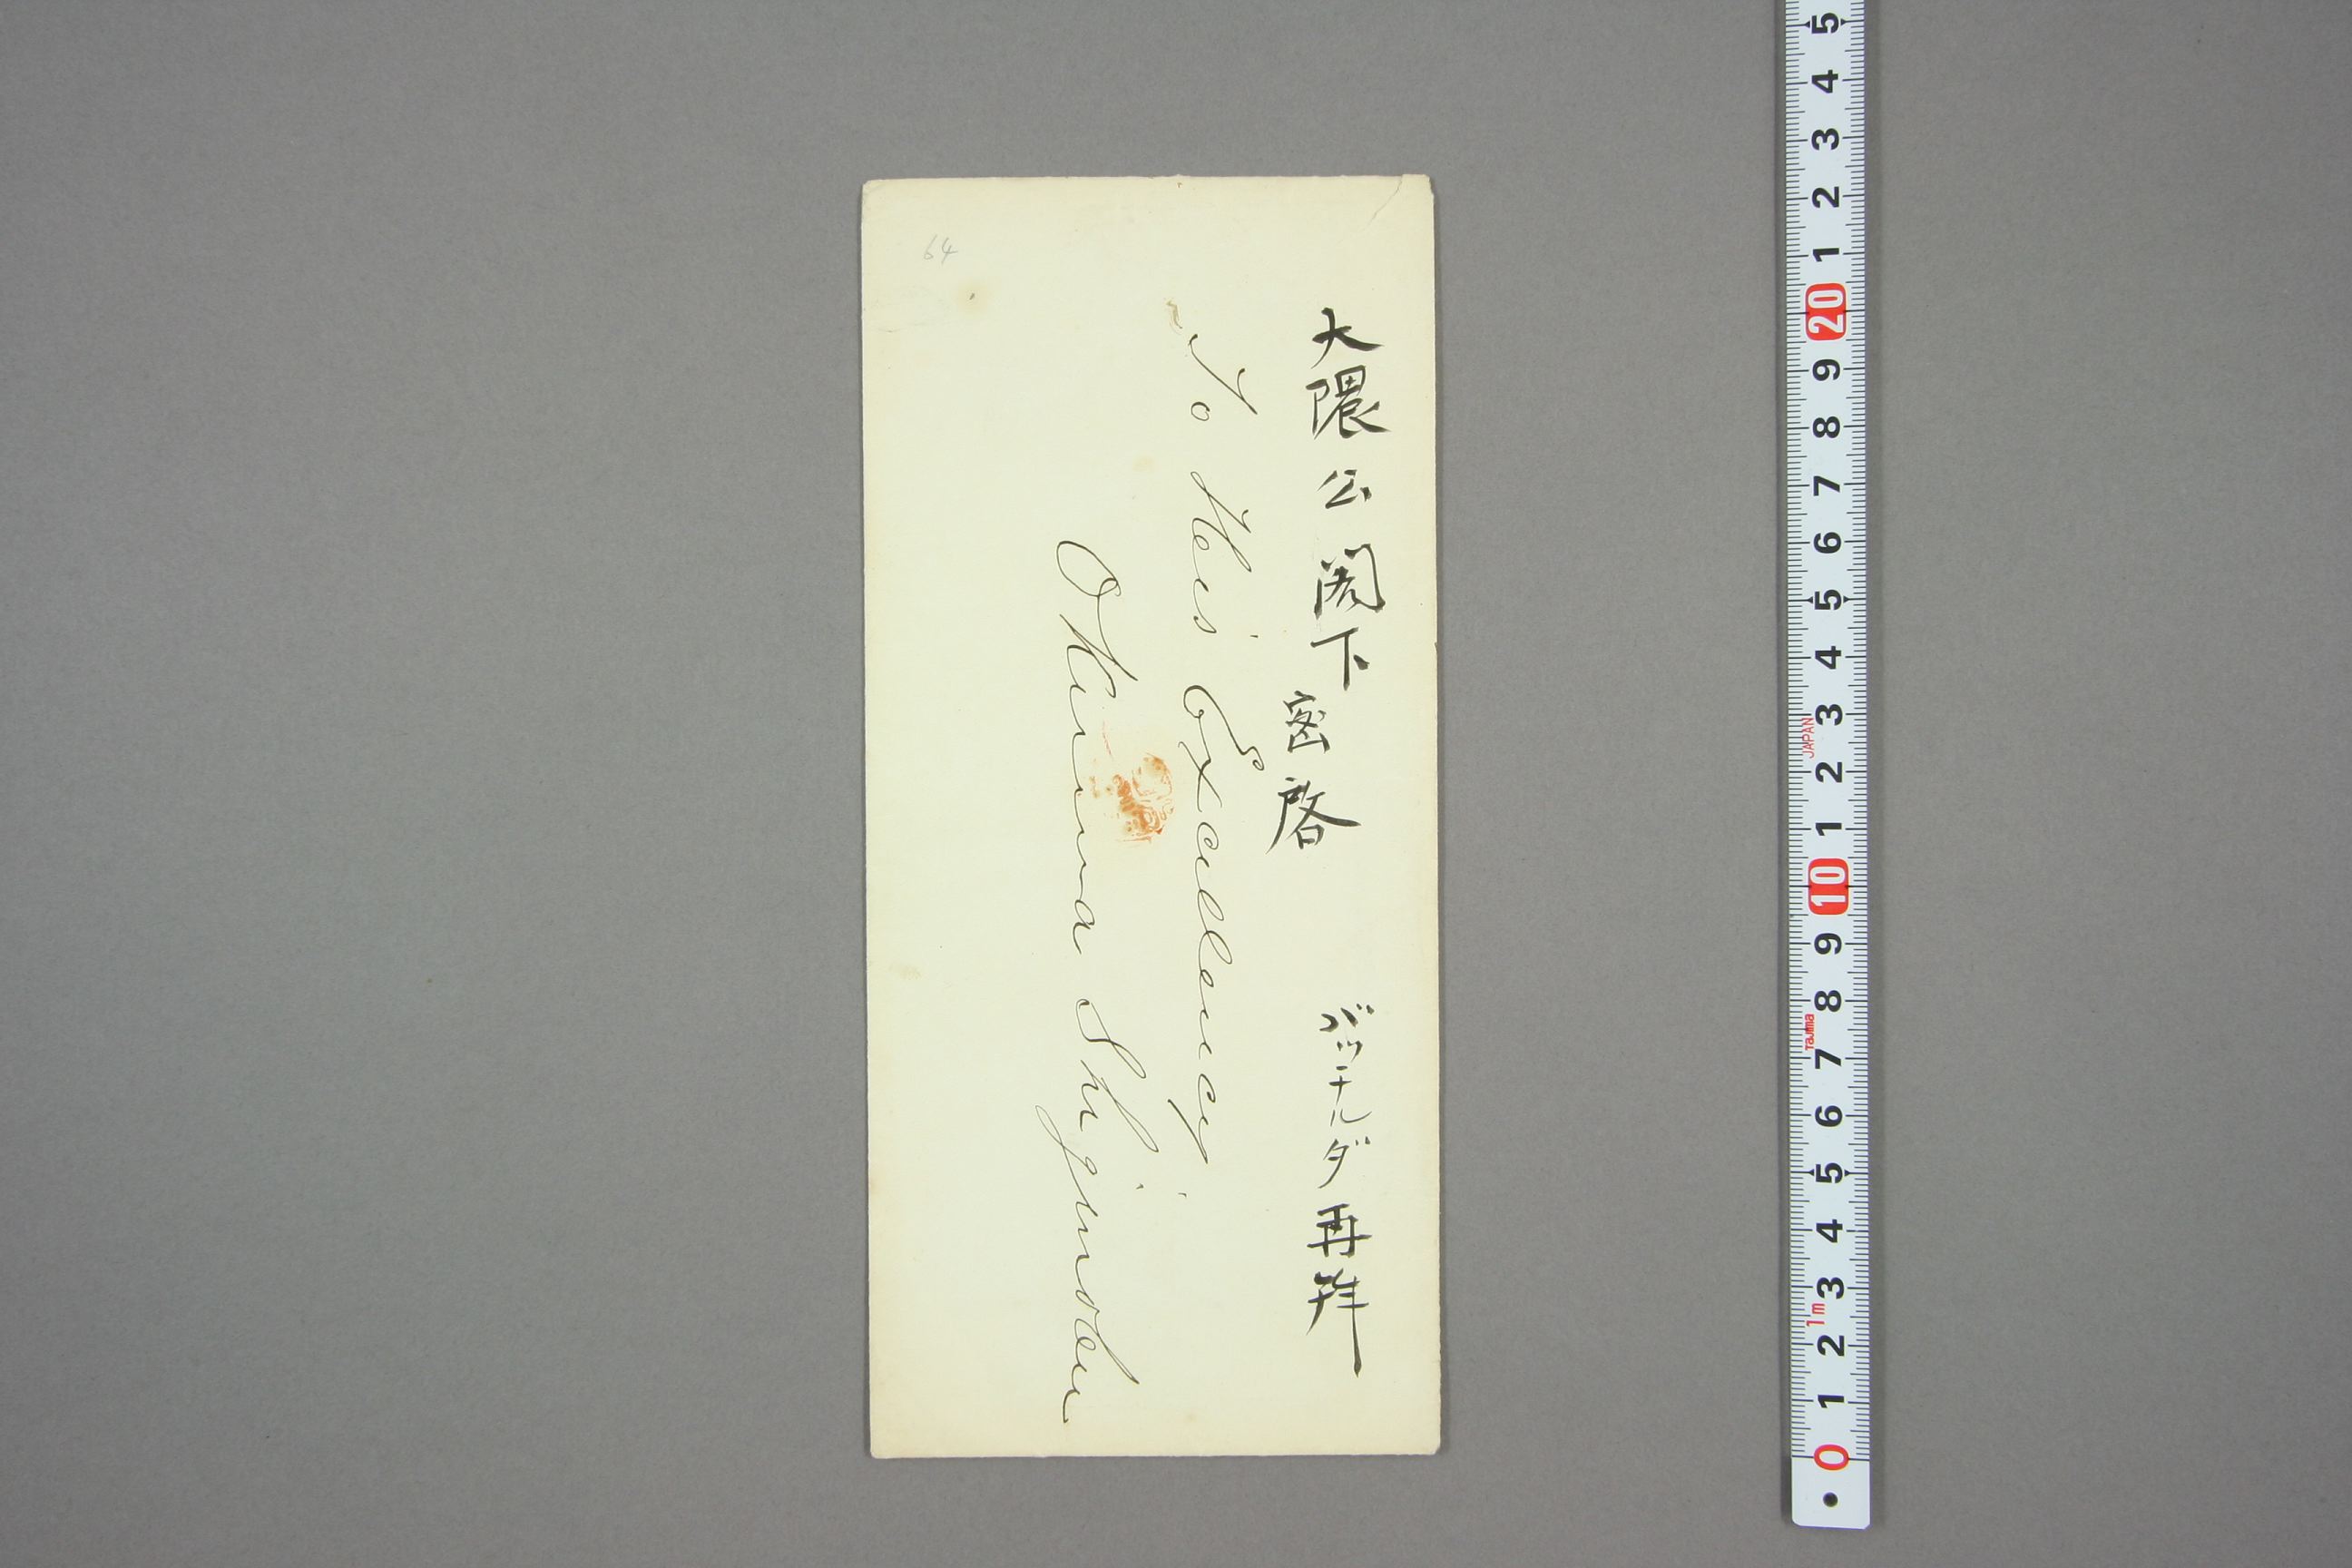 大隈公閣下
密啓
バッチルダ再拝
To His Excellency
Okuma Shiginobu
64
5 4 3 2 1 20 9 8 7 6 5 4 3 2 1 10 9 8 7 6 5 4 3 2 1 0
JAPAN
Tajima
1m